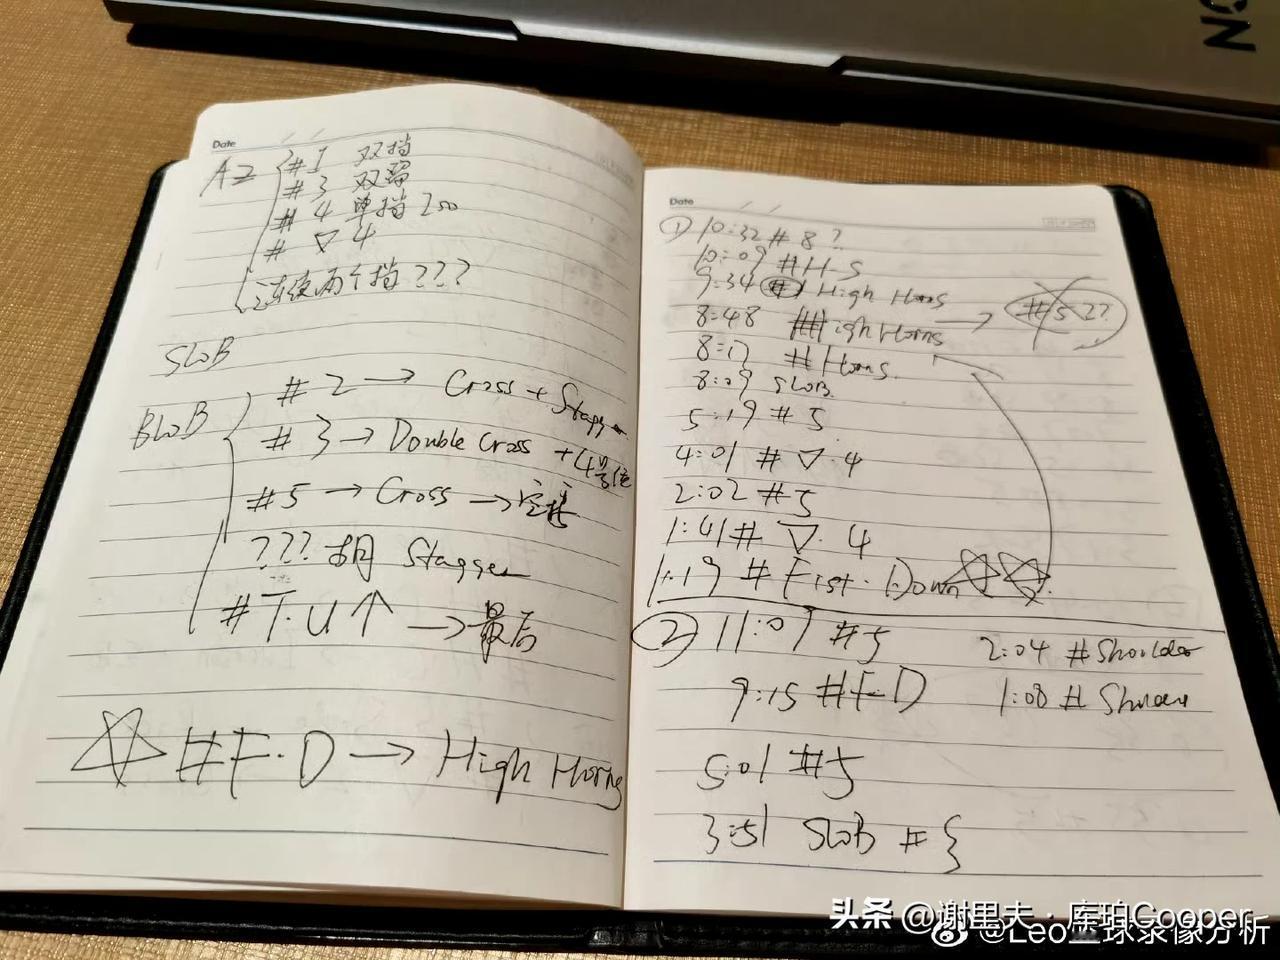 Date
A2 { #1 双挡
#3 双留
#4 单挡 Zoo
# ▽ 4
连续两个挡 ? ? ?
SLOB
BLOB { #2 → Cross + Stagger
#3 → Double Cross + 4号位
#5 → Cross →
? ? ? 胡 Stagger
# T.U ↑ → 最后
☆ # F·D → High Horns
Date
① 10:32 # 8 ?
10:09 # H-S
9:34 # High Horns
8:48 # High Horns → #5 ??
8:17 # Horns
8:09 SLOB
5:19 # 5
4:01 # ▽·4
2:02 # 5
1:41 # ▽·4
1:19 # Fist·Down ☆☆
② 11:07 # 5
2:04 # Shoulder
9:15 # F-D
1:08 #
5:01 # 5
3:51 SLOB # {
ON
头条 @谢里夫·库珀Cooper
@Leo 球录像分析